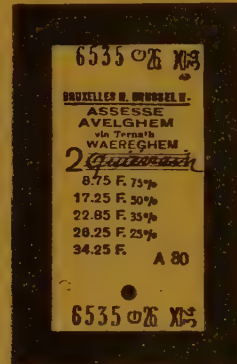 6535 26
BRUXELLES N. BRUSSEL N.
ASSESSE
AVELGHEM
via Ternath
WAEREGHEM
2
8.75 F. 75%
17.25 F. 50%
22.85 F. 35%
26.25 F. 25%
34.25 F.
A 80
6535 26